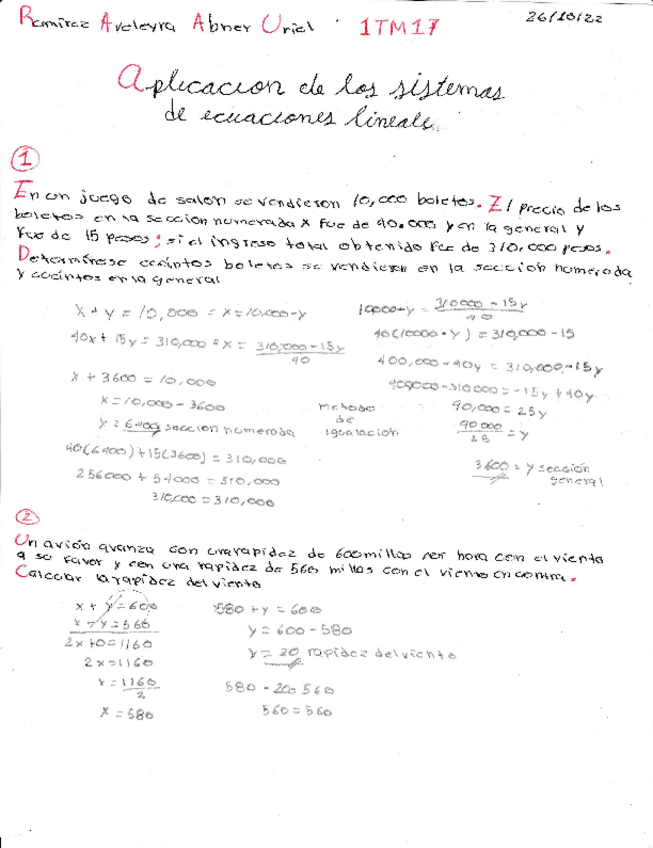 Ramirez Aveleyra Abner Uriel 1TM17 26/10/22
Aplicacion de los sistemas
de ecuaciones lineale
1
En un juego de salon se vendieron 10,000 boletos. El precio de los
boletos en la seccion numerada x fue de 40.000 y en la general y
fue de 15 pesos; si el ingreso total obtenido fue de 310,000 pesos.
Determinese cuántos boletos se vendieron en la sección numerada
y cuántos en la general
x+y=10,000 = x=10,000-y
40x+15y=310,000 = x= 310,000-15y / 40
x+3600=10,000
x=10,000-3600
x=6400 seccion numerada
40(6400)+15(3600)=310,000
256000+54000=310,000
310,000=310,000
metodo
de
igualación
10000-y= 310000-15y / 40
40(10000-y)=310,000-15
400,000-40y=310,000-15y
400000-310000=-15y+40y
90,000=25y
90000 / 25 =y
3600=y sección
general
2
Un avión avanza con una rapidez de 600 millas por hora con el viento
a su favor y con una rapidez de 560 millas con el viento en contra.
Calcular la rapidez del viento
x+y=600
x-y=560
2x+0=1160
2x=1160
x=1160 / 2
x=580
580+y=600
y=600-580
y=20 rapidez del viento
580-20=560
560=560